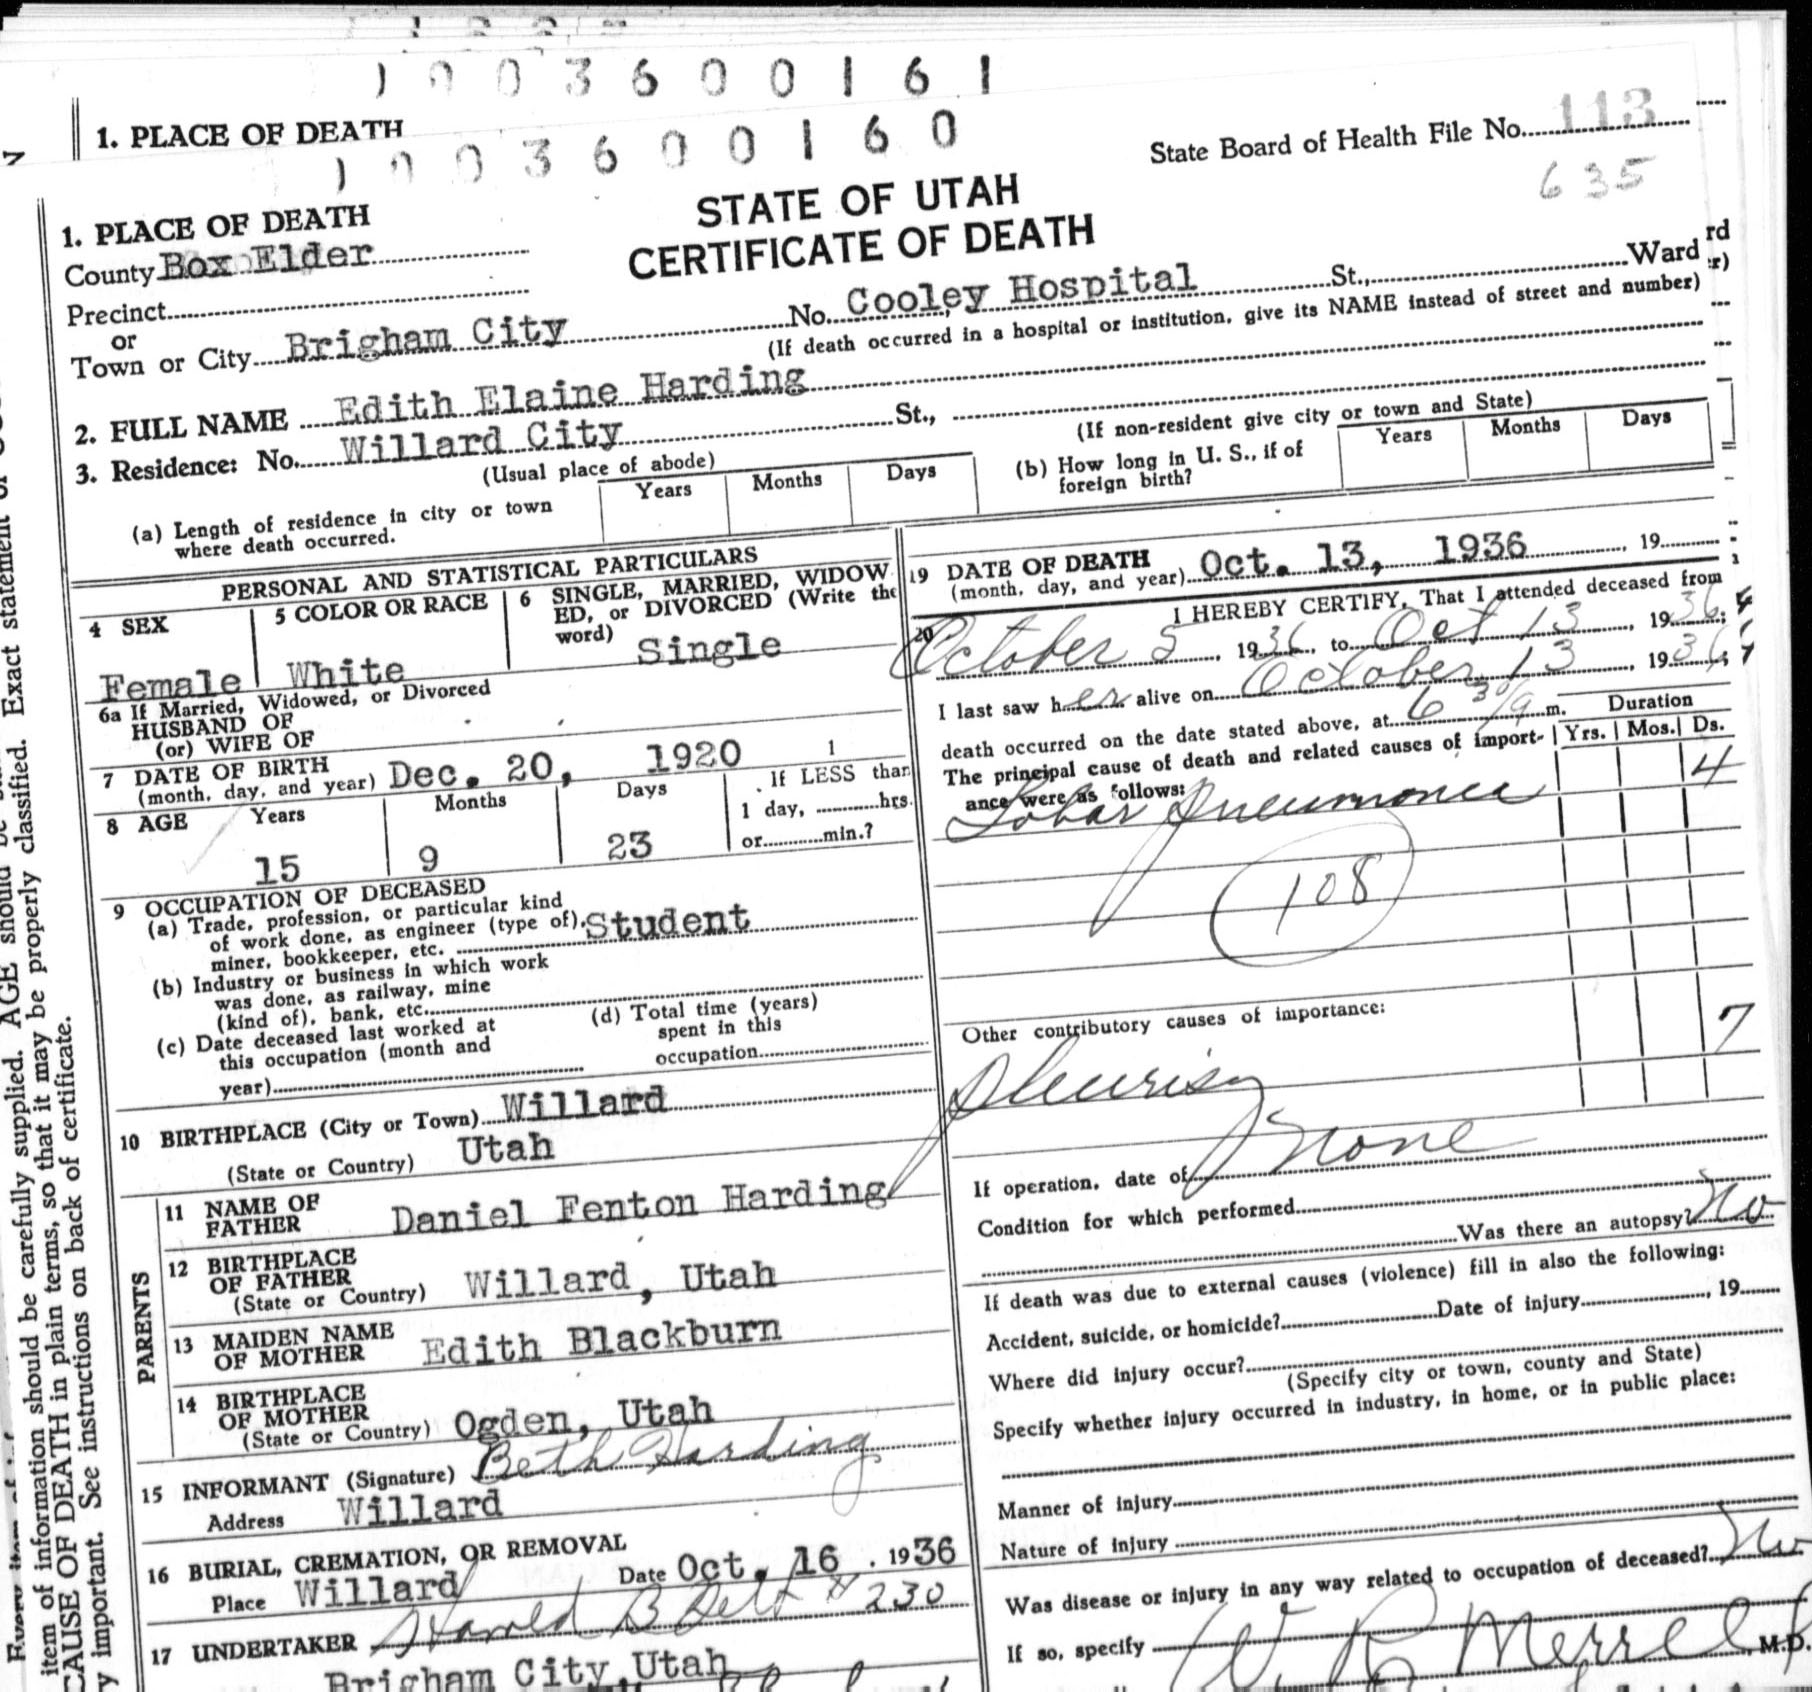 1003600161
1. PLACE OF DEATH
1003600160
State Board of Health File No. 113
635
STATE OF UTAH
CERTIFICATE OF DEATH
1. PLACE OF DEATH
County Box Elder
Precinct
or
Town or City Brigham City No. Cooley Hospital St., Ward
(If death occurred in a hospital or institution, give its NAME instead of street and number)
2. FULL NAME Edith Elaine Harding
3. Residence: No. Willard City St.,
(Usual place of abode) (If non-resident give city or town and State)
(a) Length of residence in city or town where death occurred. Years Months Days
(b) How long in U. S., if of foreign birth? Years Months Days
PERSONAL AND STATISTICAL PARTICULARS
4 SEX
Female
5 COLOR OR RACE
White
6 SINGLE, MARRIED, WIDOW
ED, or DIVORCED (Write the
word) Single
6a If Married, Widowed, or Divorced
HUSBAND OF
(or) WIFE OF
7 DATE OF BIRTH
(month, day, and year) Dec. 20, 1920
8 AGE Years Months Days
15 9 23
1
If LESS than
1 day, hrs.
or min.?
9 OCCUPATION OF DECEASED
(a) Trade, profession, or particular kind
of work done, as engineer (type of), Student
miner, bookkeeper, etc.
(b) Industry or business in which work
was done, as railway, mine
(kind of), bank, etc.
(c) Date deceased last worked at
this occupation (month and
year)
(d) Total time (years)
spent in this
occupation
10 BIRTHPLACE (City or Town) Willard
(State or Country) Utah
PARENTS
11 NAME OF
FATHER Daniel Fenton Harding
12 BIRTHPLACE
OF FATHER
(State or Country) Willard, Utah
13 MAIDEN NAME
OF MOTHER Edith Blackburn
14 BIRTHPLACE
OF MOTHER
(State or Country) Ogden, Utah
15 INFORMANT (Signature) Beth Harding
Address Willard
16 BURIAL, CREMATION, OR REMOVAL
Place Willard Date Oct. 16, 1936
17 UNDERTAKER Harold B Felt # 230
Brigham City, Utah
19 DATE OF DEATH
(month, day, and year) Oct. 13, 1936, 19
20 I HEREBY CERTIFY, That I attended deceased from
October 5, 1936, to Oct 13, 1936;
I last saw her alive on October 13, 1936;
death occurred on the date stated above, at 6 30/a m.
The principal cause of death and related causes of import-
ance were as follows:
Duration
Yrs. Mos. Ds.
Lobar Pneumonia 4
108
Other contributory causes of importance:
Pleurisy 7
If operation, date of None
Condition for which performed
Was there an autopsy? No
If death was due to external causes (violence) fill in also the following:
Accident, suicide, or homicide? Date of injury, 19
Where did injury occur?
(Specify city or town, county and State)
Specify whether injury occurred in industry, in home, or in public place:
Manner of injury
Nature of injury
Was disease or injury in any way related to occupation of deceased? No
If so, specify
W R Merrell, M.D.
item of information should be carefully supplied. AGE should be
CAUSE OF DEATH in plain terms, so that it may be properly classified. Exact statement of
important. See instructions on back of certificate.